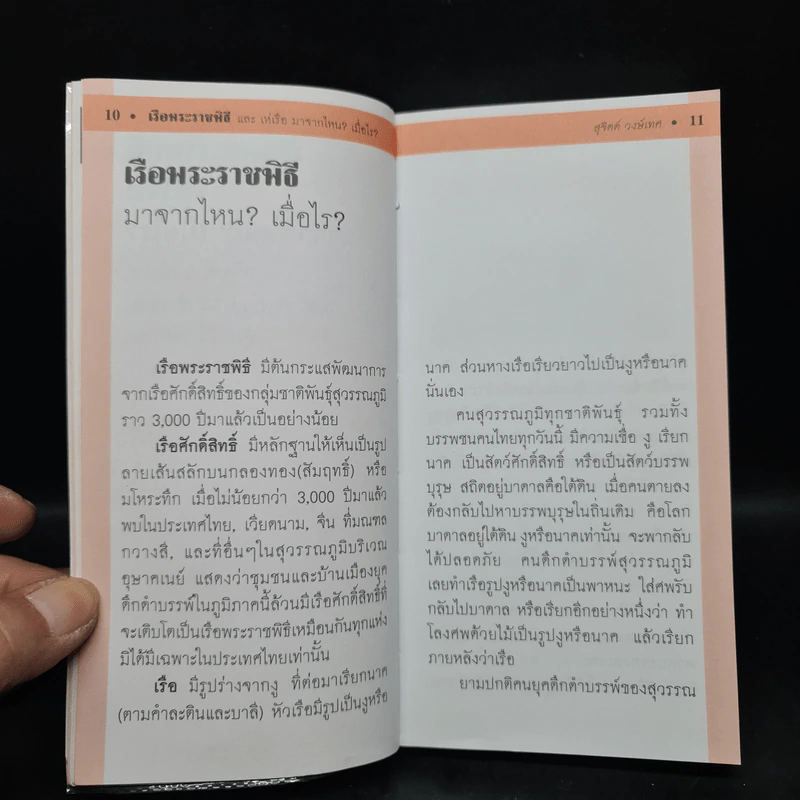 10 • เรือพระราชพิธี และ เห่เรือ มาจากไหน? เมื่อไร?
เรือพระราชพิธี
มาจากไหน? เมื่อไร?
เรือพระราชพิธี มีต้นกระแสพัฒนาการ
จากเรือศักดิ์สิทธิ์ของกลุ่มชาติพันธุ์สุวรรณภูมิ
ราว 3,000 ปีมาแล้วเป็นอย่างน้อย
เรือศักดิ์สิทธิ์ มีหลักฐานให้เห็นเป็นรูป
ลายเส้นสลักบนกลองทอง(สัมฤทธิ์) หรือ
มโหระทึก เมื่อไม่น้อยกว่า 3,000 ปีมาแล้ว
พบในประเทศไทย, เวียดนาม, จีน ที่มณฑล
กวางสี, และที่อื่นๆในสุวรรณภูมิบริเวณ
อุษาคเนย์ แสดงว่าชุมชนและบ้านเมืองยุค
ดึกดำบรรพ์ในภูมิภาคนี้ล้วนมีเรือศักดิ์สิทธิ์ที่
จะเติบโตเป็นเรือพระราชพิธีเหมือนกันทุกแห่ง
มิได้มีเฉพาะในประเทศไทยเท่านั้น
เรือ มีรูปร่างจากงู ที่ต่อมาเรียกนาค
(ตามคำละตินและบาลี) หัวเรือมีรูปเป็นงูหรือ
สุจิตต์ วงษ์เทศ • 11
นาค ส่วนหางเรือเรียวยาวไปเป็นงูหรือนาค
นั่นเอง
คนสุวรรณภูมิทุกชาติพันธุ์ รวมทั้ง
บรรพชนคนไทยทุกวันนี้ มีความเชื่อ งู เรียก
นาค เป็นสัตว์ศักดิ์สิทธิ์ หรือเป็นสัตว์บรรพ
บุรุษ สถิตอยู่บาดาลคือใต้ดิน เมื่อคนตายลง
ต้องกลับไปหาบรรพบุรุษในถิ่นเดิม คือโลก
บาดาลอยู่ใต้ดิน งูหรือนาคเท่านั้น จะพากลับ
ได้ปลอดภัย คนดึกดำบรรพ์สุวรรณภูมิ
เลยทำเรือรูปงูหรือนาคเป็นพาหนะ ใส่ศพรับ
กลับไปบาดาล หรือเรียกอีกอย่างหนึ่งว่า ทำ
โลงศพด้วยไม้เป็นรูปงูหรือนาค แล้วเรียก
ภายหลังว่าเรือ
ยามปกติคนยุคดึกดำบรรพ์ของสุวรรณ